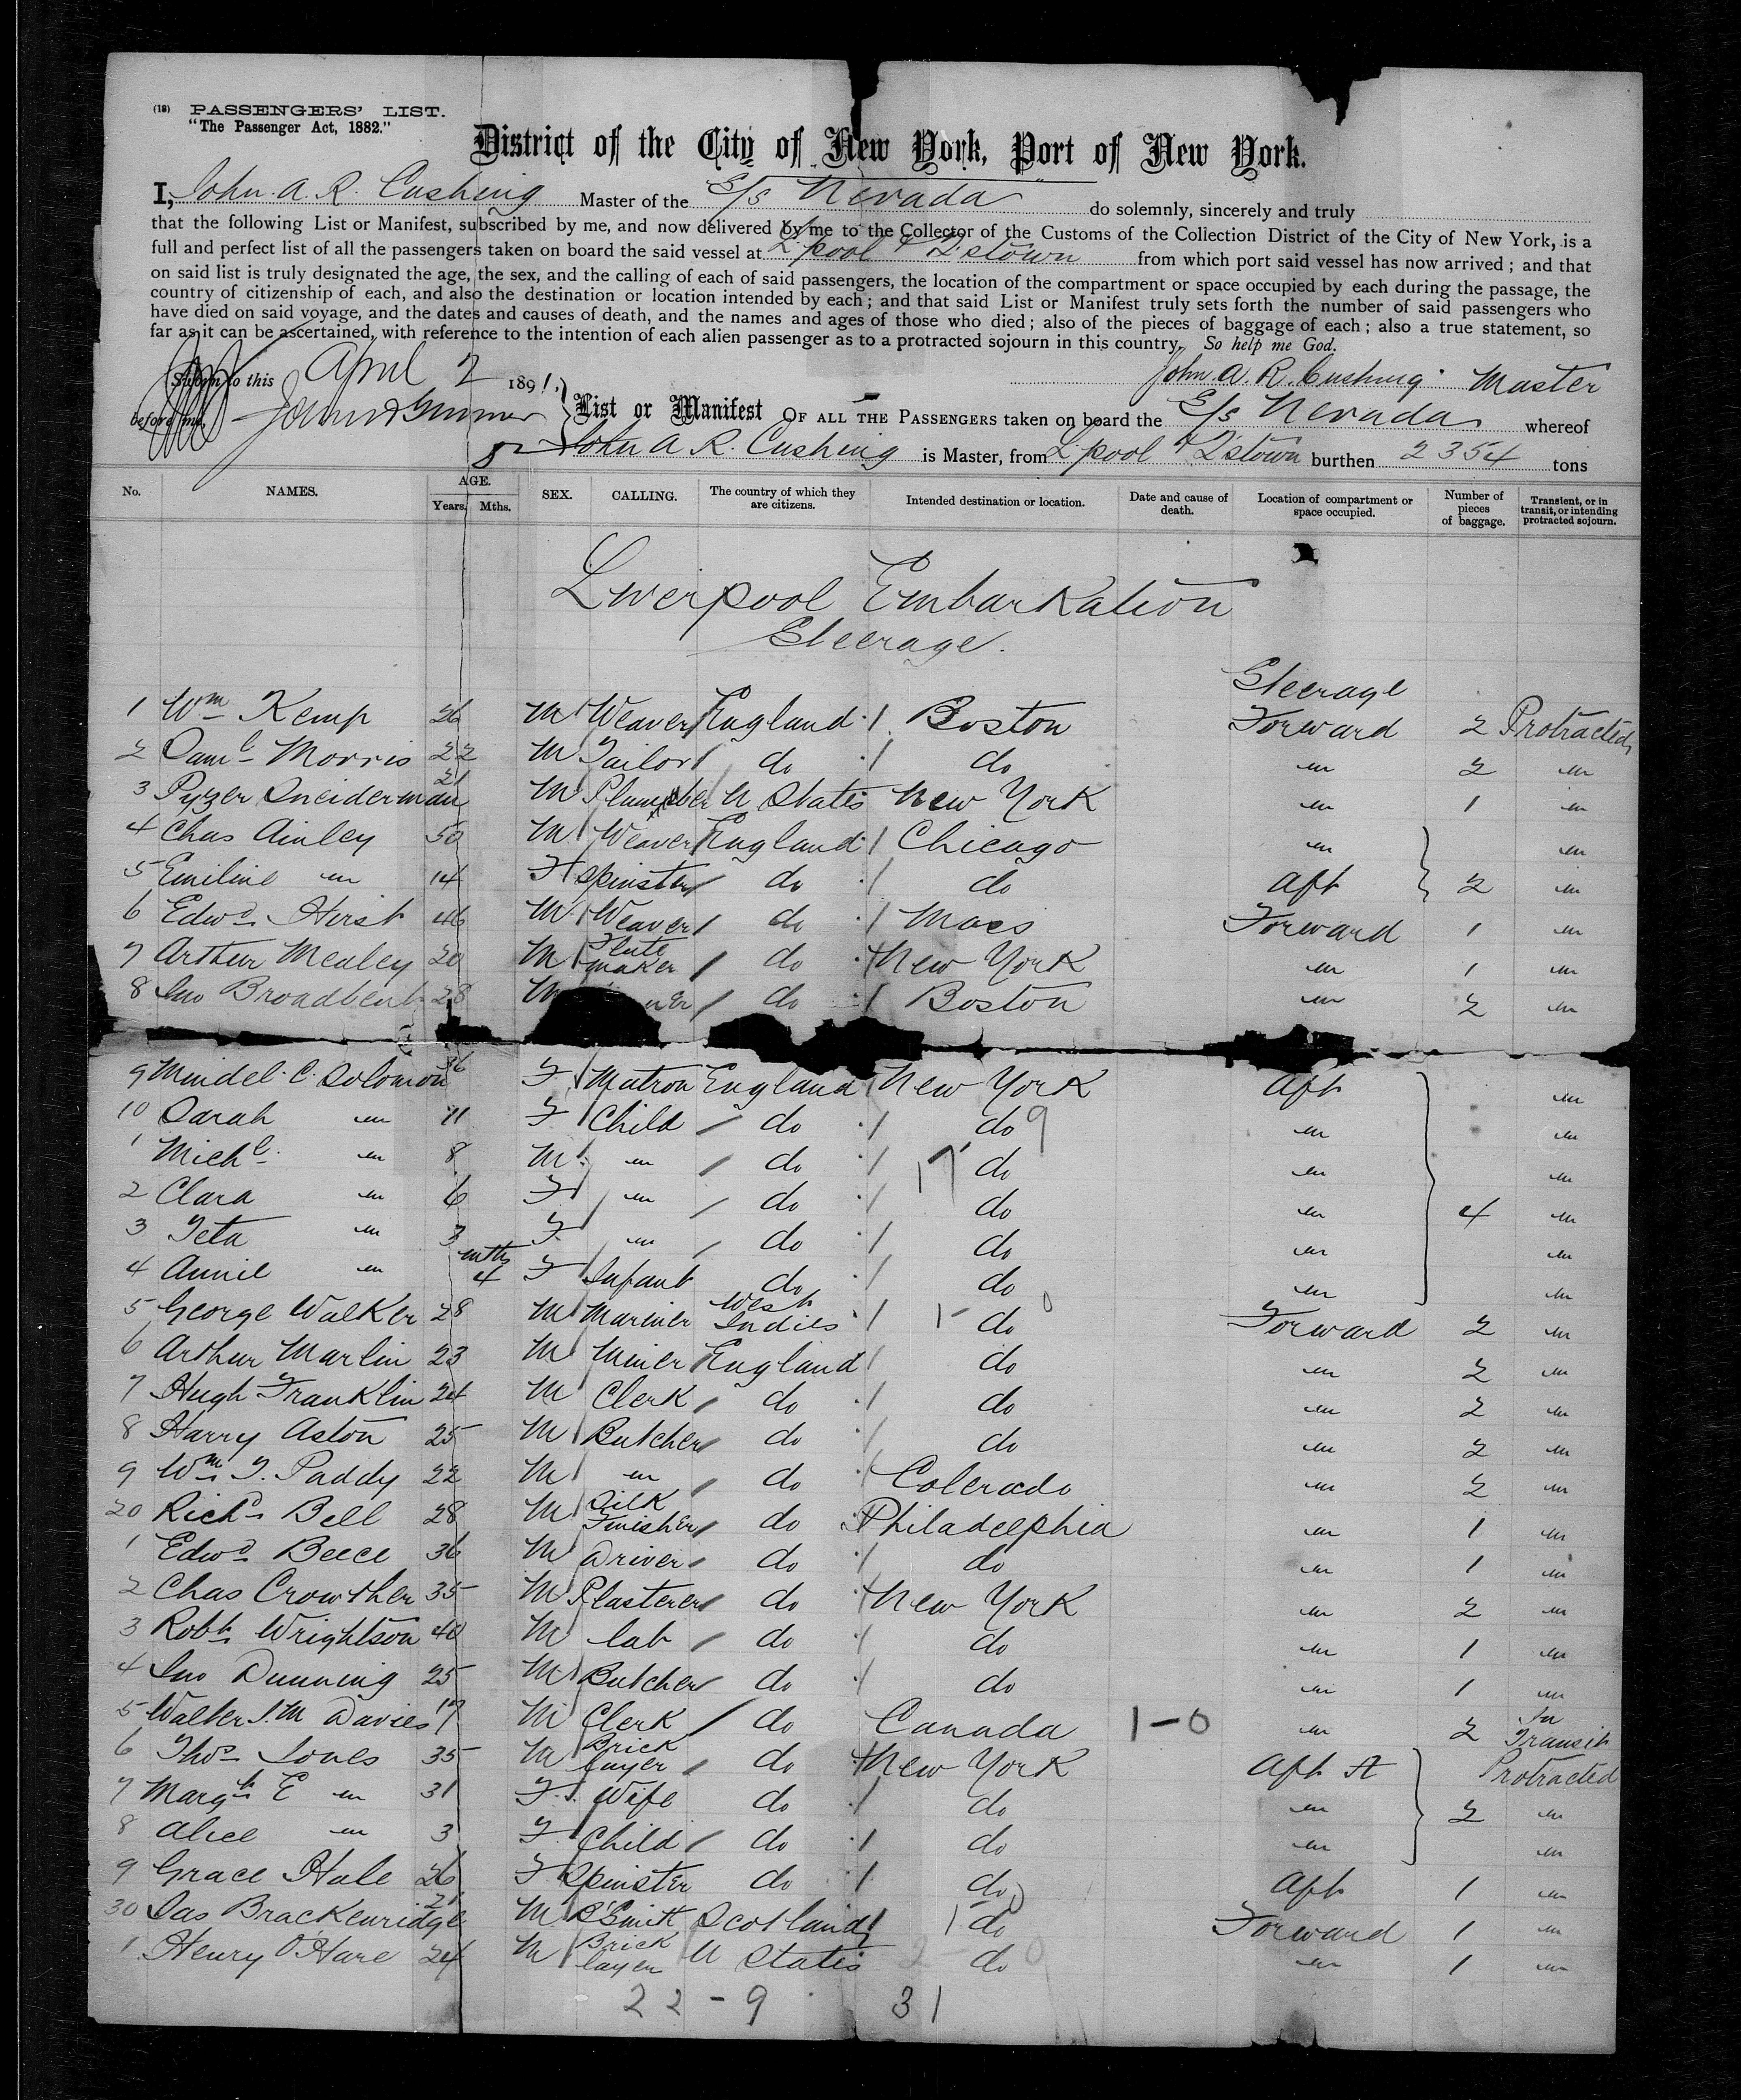 (12) PASSENGERS' LIST.
"The Passenger Act, 1882."
District of the City of New York, Port of New York.
I, John. A. R. Cushing Master of the S/s Nevada do solemnly, sincerely and truly
that the following List or Manifest, subscribed by me, and now delivered by me to the Collector of the Customs of the Collection District of the City of New York, is a
full and perfect list of all the passengers taken on board the said vessel at L'pool & Q'stown from which port said vessel has now arrived; and that
on said list is truly designated the age, the sex, and the calling of each of said passengers, the location of the compartment or space occupied by each during the passage, the
country of citizenship of each, and also the destination or location intended by each; and that said List or Manifest truly sets forth the number of said passengers who
have died on said voyage, and the dates and causes of death, and the names and ages of those who died; also of the pieces of baggage of each; also a true statement, so
far as it can be ascertained, with reference to the intention of each alien passenger as to a protracted sojourn in this country. So help me God.
Sworn to this April 2 1891, John. A. R. Cushing Master
before me, List or Manifest OF ALL THE PASSENGERS taken on board the S/s Nevada whereof
John A R. Cushing is Master, from L'pool & Q'stown burthen 2354 tons
No. NAMES. AGE. Years. Mths. SEX. CALLING. The country of which they are citizens. Intended destination or location. Date and cause of death. Location of compartment or space occupied. Number of pieces of baggage. Transient, or in transit, or intending protracted sojourn.
Liverpool Embarkation
Steerage.
Steerage
1 Wm Kemp 26 M Weaver England Boston Forward 2 Protracted
2 Saml Morris 22 M Tailor do do " 2 "
3 Pyzer Sneiderman 21 M Plumber U States New York " 1 "
4 Chas Ainley 50 M Weaver England Chicago " "
5 Emiline " 14 F Spinster do do Aft 2 "
6 Edwd Hirst 46 M Weaver do Mass Forward 1 "
7 Arthur Mealey 20 M Flute maker do New York " 1 "
8 Jno Broadbent 28 M do Boston " 2 "
9 Mindel. C. Solomon 36 F Matron England New York Aft "
10 Sarah " 11 F Child do do 9 " "
1 Michl " 8 M " do do " "
2 Clara " 6 F " do do " 4 "
3 Teta " 3 F " do do " "
4 Annie " mths 4 F Infant do do " "
5 George Walker 28 M Mariner West Indies do Forward 2 "
6 Arthur Marlin 23 M Miner England do " 2 "
7 Hugh Franklin 24 M Clerk do do " 2 "
8 Harry Aston 25 M Butcher do do " 2 "
9 Wm T. Paddy 22 M " do Colerado " 2 "
20 Richd Bell 28 M Silk Finisher do Philadelphia " 1 "
1 Edwd Beece 36 M Driver do do " 1 "
2 Chas Crowther 35 M Plasterer do New York " 2 "
3 Robt Wrightson 40 M lab do do " 1 "
4 Jno Dunning 25 M Butcher do do " 1 "
5 Walter J. M Davies 17 M Clerk do Canada 1-0 " 2 In Transit
6 Thos Jones 35 M Brick layer do New York Aft St Protracted
7 Margt E " 31 F Wife do do " 2 "
8 Alice " 3 F Child do do " "
9 Grace Hale 26 F Spinster do do Aft 1 "
30 Jas Brackenridge 21 M B'Smith Scotland do Forward 1 "
1 Henry O'Hare 24 M Brick layer U States do " 1 "
22 - 9 31